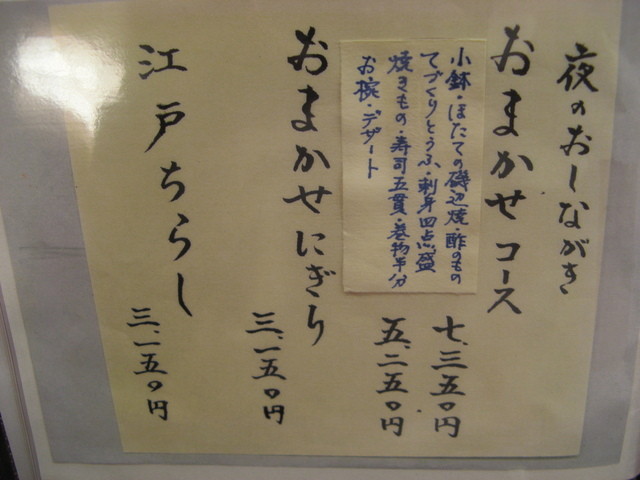 夜のおしながき
おまかせコース
七、三五〇円
五、二五〇円
小鉢・ほたての磯辺焼・酢のもの
てづくりとうふ・刺身四点盛
焼きもの・寿司五貫・巻物半分
お椀・デザート
おまかせにぎり
三、一五〇円
江戸ちらし
三、一五〇円